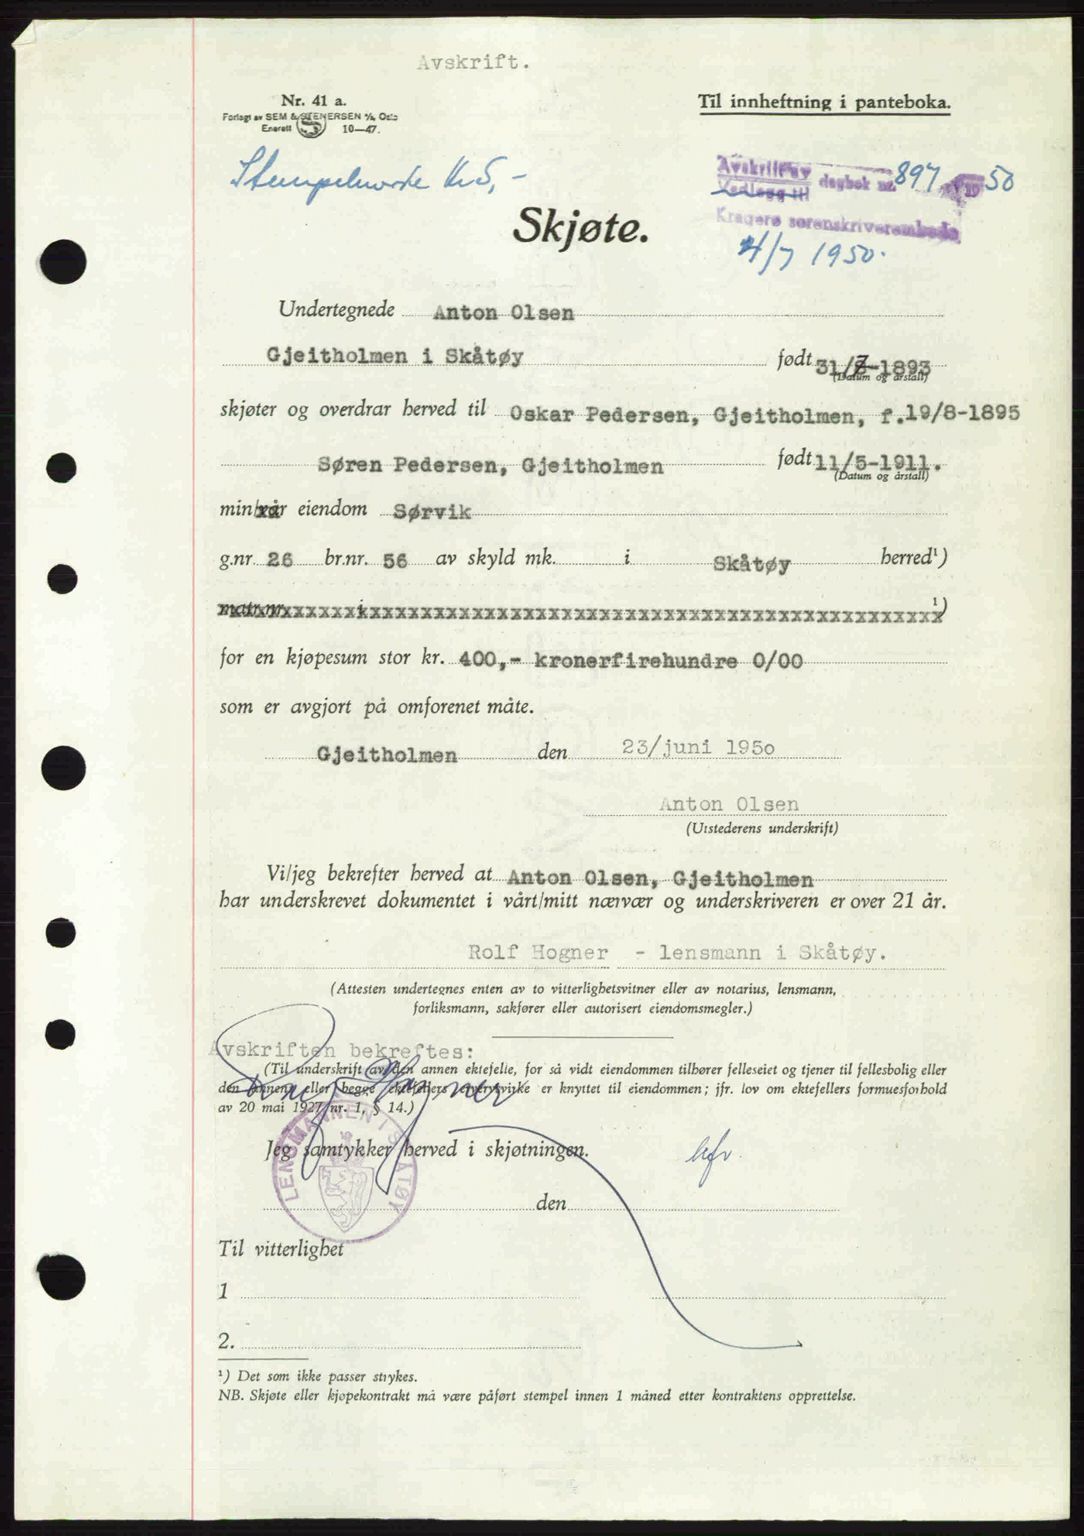 Avskrift.
Nr. 41 a.
Forlagt av SEM & STENERSEN A/s, Oslo
Enerett S 10—47.
Til innheftning i panteboka.
Stempelmerke kr 5,-
Avskrift av
Vedlegg til dagbok nr. 897 1950
Kragerø sorenskriverembede
4/7 1950.
Skjøte.
Undertegnede Anton Olsen
Gjeitholmen i Skåtøy født 31/7-1893
(Datum og årstall)
skjøter og overdrar herved til Oskar Pedersen, Gjeitholmen, f.19/8-1895
Søren Pedersen, Gjeitholmen født 11/5-1911.
(Datum og årstall)
min/vår eiendom Sørvik
g.nr. 26 br.nr. 56 av skyld mk. i Skåtøy herred¹)
matr.nr. i ¹)
for en kjøpesum stor kr. 400,- kronerfirehundre 0/00
som er avgjort på omforenet måte.
Gjeitholmen den 23/juni 195o
Anton Olsen
(Utstederens underskrift)
Vi/jeg bekrefter herved at Anton Olsen, Gjeitholmen
har underskrevet dokumentet i vårt/mitt nærvær og underskriveren er over 21 år.
Rolf Hogner - lensmann i Skåtøy.
(Attesten undertegnes enten av to vitterlighetsvitner eller av notarius, lensmann,
forliksmann, sakfører eller autorisert eiendomsmegler.)
Avskriften bekreftes:
(Til underskrift av den annen ektefelle, for så vidt eiendommen tilhører felleseiet og tjener til fellesbolig eller
den annens eller begge ektefellers ervervsvirke er knyttet til eiendommen; jfr. lov om ektefellers formuesforhold
av 20 mai 1927 nr. 1, § 14.)
Jeg samtykker herved i skjøtningen.
LENSMANNEN I SKÅTØY
den
Til vitterlighet
1
2.
¹) Det som ikke passer strykes.
NB. Skjøte eller kjøpekontrakt må være påført stempel innen 1 måned etter kontraktens opprettelse.